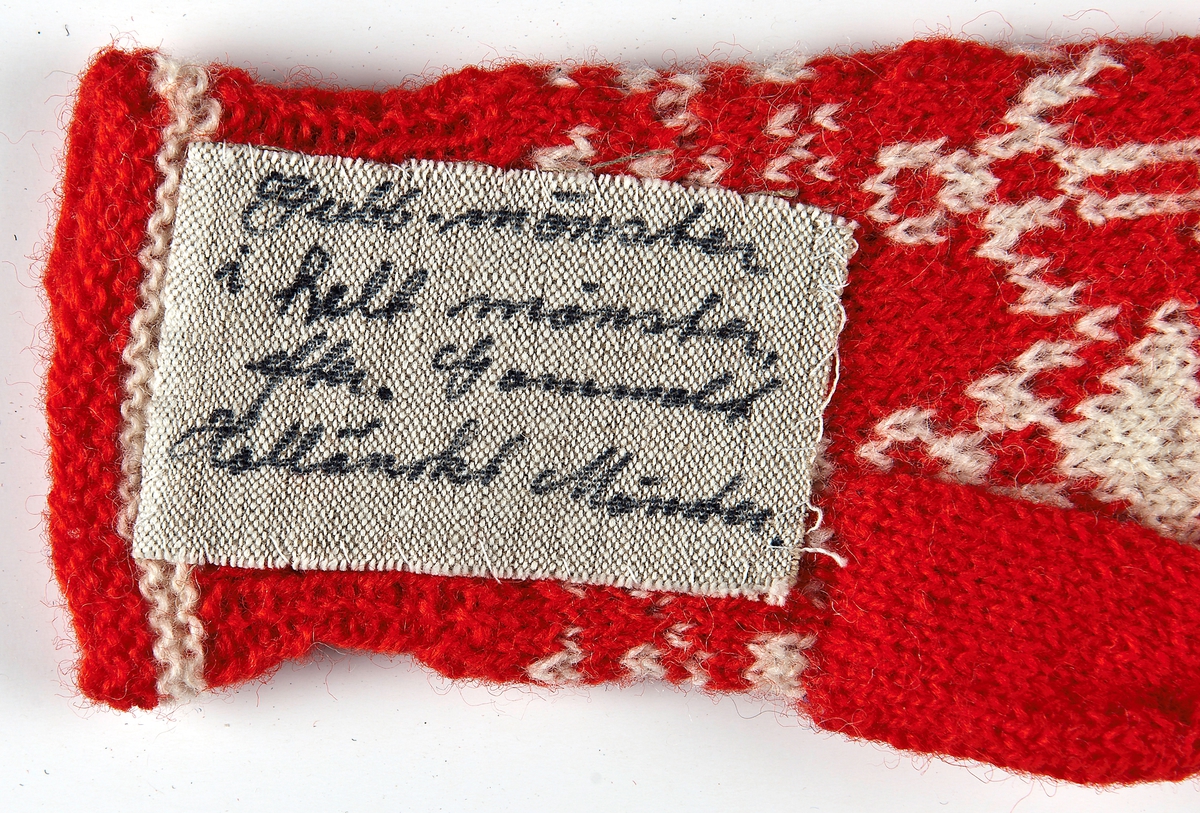 Gubb-mönster
i helt mönster,
efter. Gammalt
Halländskt Mönster.